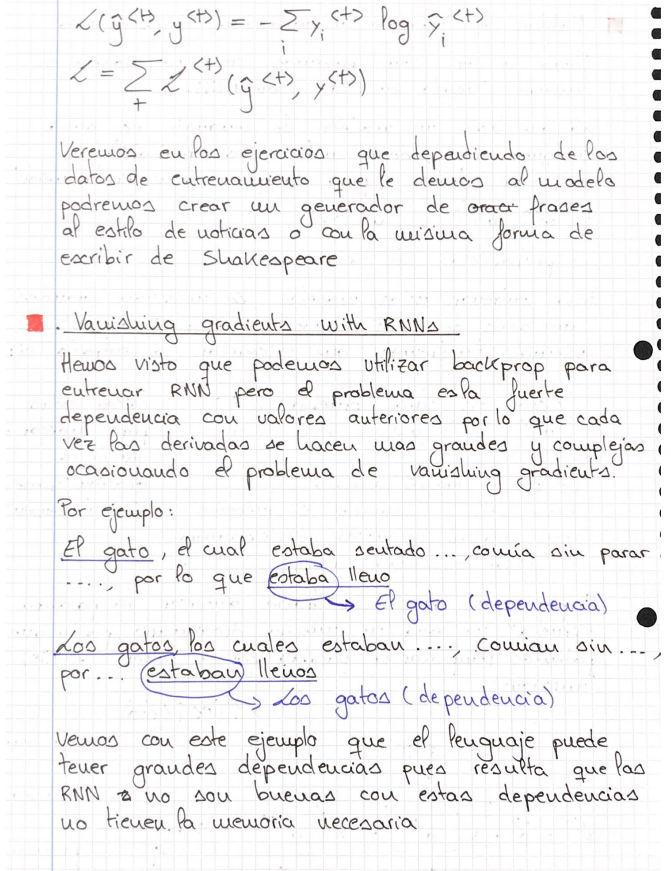 L(ŷ<t>, y<t>) = - Σi yi<t> log ŷi<t>
L = Σt L<t>(ŷ<t>, y<t>)
Veremos en los ejercicios que dependiendo de los
datos de entrenamiento que le demos al modelo
podremos crear un generador de frases
al estilo de noticias o con la misma forma de
escribir de Shakespeare
. Vanishing gradients with RNNs
Hemos visto que podemos utilizar backprop para
entrenar RNN pero el problema es la fuerte
dependencia con valores anteriores por lo que cada
vez las derivadas se hacen mas grandes y complejas
ocasionando el problema de vanishing gradients.
Por ejemplo:
El gato, el cual estaba sentado ..., comía sin parar
...., por lo que estaba lleno
→ El gato (dependencia)
Los gatos, los cuales estaban ...., comian sin ...,
por ... estaban llenos
→ Los gatos (dependencia)
Vemos con este ejemplo que el lenguaje puede
tener grandes dependencias pues resulta que las
RNN no son buenas con estas dependencias
no tienen la memoria necesaria